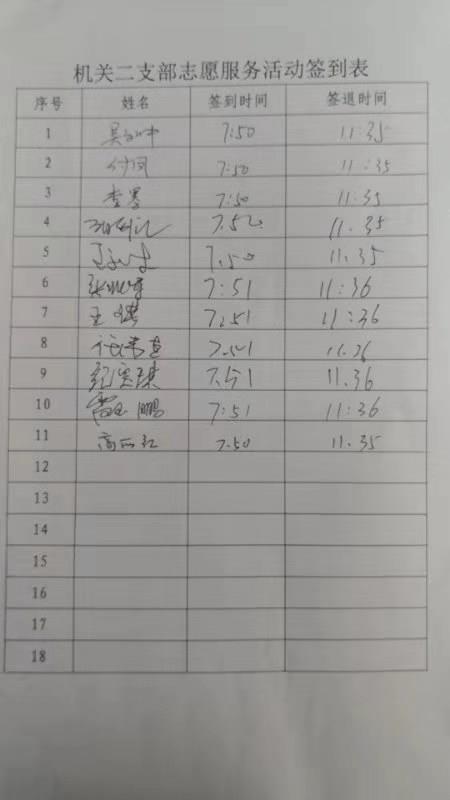 机关二支部志愿服务活动签到表
序号 姓名 签到时间 签退时间
1 7:50 11:35
2 付凤 7:50 11:35
3 7:50 11:35
4 7.52 11.35
5 7.50 11.35
6 7:51 11:36
7 王 7.51 11:36
8 7.51 11.36
9 7.51 11.36
10 鹏 7:51 11:36
11 7.50 11.35
12
13
14
15
16
17
18